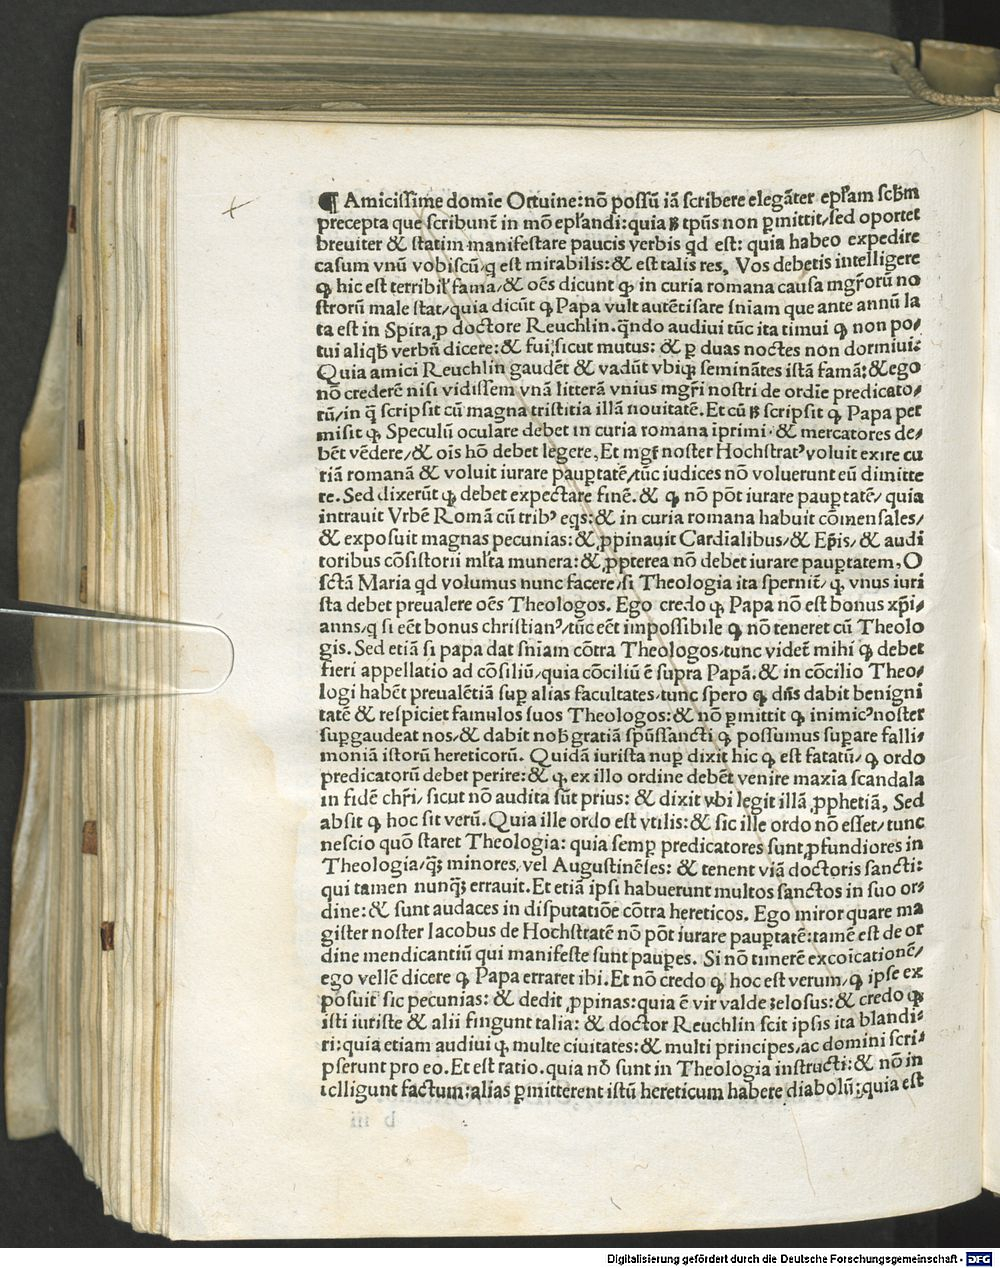 ¶ Amicissime domīe Ortuine: nō possū iā scribere elegāter epłam scħm
precepta que scribunt̄ in mō epłandi: quia ꝑ tp̄us non ꝑmittit/ sed oportet
breuiter & statim manifestare paucis verbis qd est: quia habeo expedire
casum vnū vobiscū/ q est mirabilis: & est talis res. Vos debetis intelligere
ꝙ hic est terribil̓ fama/ & oēs dicunt ꝙ in curia romana causa mgr̄orū no
strorū male stat/ quia dicūt ꝙ Papa vult autētisare sn̄iam que ante annū la
ta est in Spira ꝓ doctore Reuchlin. qn̄do audiui tūc ita timui ꝙ non po⸗
tui aliqđ verbū dicere: & fui sicut mutus: & ꝑ duas noctes non dormiui:
Quia amici Reuchlin gaudēt & vadūt vbiqꝫ seminātes istā famā: & ego
nō crederē nisi vidissem vnā litterā vnius mgr̄i nostri de ordīe predicato⸗
rū/ in q̄ scripsit cū magna tristitia illā nouitatē. Et cū ꝑ scripsit ꝙ Papa per
misit ꝙ Speculū oculare debet in curia romana īprimi. & mercatores de⸗
bēt vēdere/ & oīs hō debet legere. Et mgr̄ noster Hochstratꝰ voluit exire cu
riā romanā & voluit iurare pauꝑtatē/ tūc iudices nō voluerunt eū dimitte
re. Sed dixerūt ꝙ debet expectare finē. & ꝙ nō pōt iurare pauꝑtatē/ quia
intrauit Vrbē Romā cū tribꝰ eqs: & in curia romana habuit cōmensales/
& exposuit magnas pecunias: & ꝓpinauit Cardialibus/ & Ep̄is/ & audi
toribus cōsistorii ml̓ta munera: & ꝓpterea nō debet iurare pauꝑtatem, O
sctā Maria qd volumus nunc facere/ si Theologia ita spernit̄/ ꝙ vnus iuri
sta debet preualere oēs Theologos. Ego credo ꝙ Papa nō est bonus xp̄i⸗
anns/ q si eēt bonus christianꝰ/ tūc eēt impossibile ꝙ nō teneret cū Theolo
gis. Sed etiā si papa dat sn̄iam cōtra Theologos/ tunc videt̄ mihi ꝙ debet
fieri appellatio ad cōsiliū/ quia cōciliū ē supra Papā. & in cōcilio Theo⸗
logi habēt preualētiā suꝑ alias facultates/ tunc spero ꝙ dn̄s dabit benigni
tatē & respiciet famulos suos Theologos: & nō ꝑmittit ꝙ inimicꝰ noster
suꝑgaudeat nos/ & dabit nob̓ gratiā sp̄ussancti ꝙ possumus suꝑare falli⸗
moniā istorū hereticorū. Quidā iurista nuꝑ dixit hic ꝙ est fatatū/ ꝙ ordo
predicatorū debet perire: & ꝙ ex illo ordine debēt venire maxīa scandala
in fidē chr̄i/ sicut nō audita sūt prius: & dixit vbi legit illā ꝓphetiā, Sed
absit ꝙ hoc sit verū. Quia ille ordo est vtilis: & sic ille ordo nō esset/ tunc
nescio quō staret Theologia: quia semꝑ predicatores sunt ꝓfundiores in
Theologia/ qꝫ minores, vel Augustinēses: & tenent viā doctoris sancti:
qui tamen nunqꝫ errauit. Et etiā ipsi habuerunt multos sanctos in suo or⸗
dine: & sunt audaces in disputatiōe cōtra hereticos. Ego miror quare ma
gister noster Iacobus de Hochstratē nō pōt iurare pauꝑtatē: tamē est de or
dine mendicantiū qui manifeste sunt pauꝑes. Si nō timerē excōicationē/
ego vellē dicere ꝙ Papa erraret ibi. Et nō credo ꝙ hoc est verum/ ꝙ ipse ex
posuit sic pecunias: & dedit ꝓpinas: quia ē vir valde zelosus: & credo ꝙ
isti iuriste & alii fingunt talia: & doctor Reuchlin scit ipsis ita blandi⸗
ri: quia etiam audiui ꝙ multe ciuitates: & multi principes, ac domini scri⸗
pserunt pro eo. Et est ratio. quia nō sunt in Theologia instructi: & nō in
telligunt factum: alias ꝑmitterent istū hereticum habere diabolū: quia est
Digitalisierung gefördert durch die Deutsche Forschungsgemeinschaft - DFG